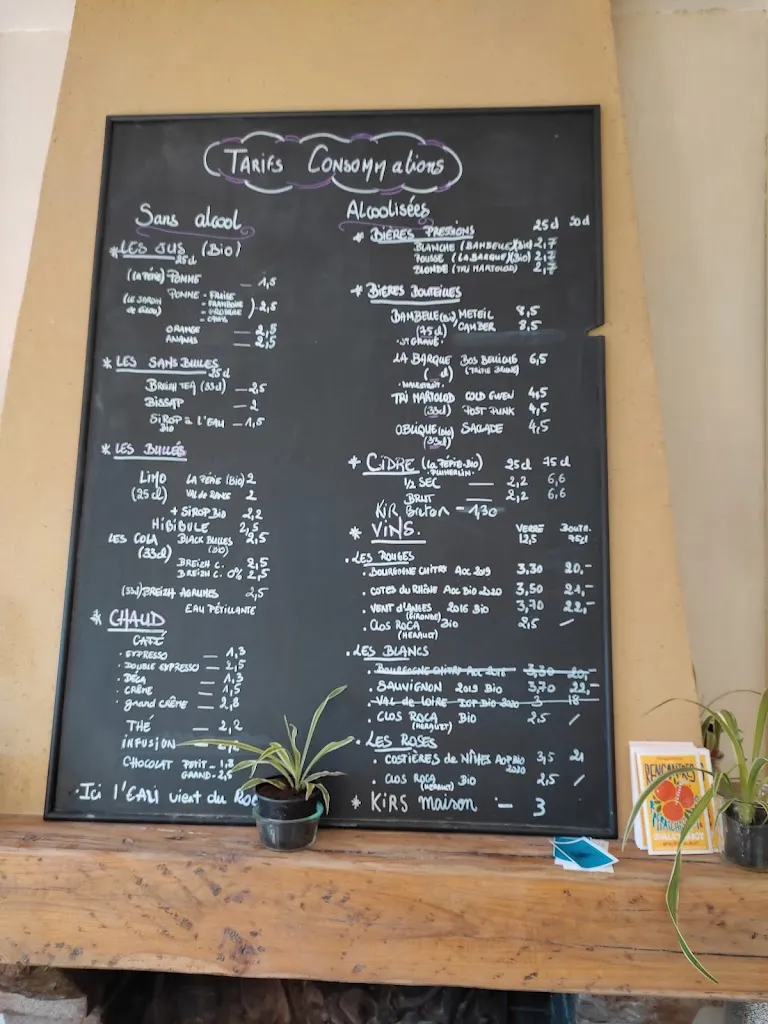 TARIFS CONSOMMATIONS
Sans alcool
* LES JUS (Bio)
25cl
(La PÉPIE) POMME — 1,5
(LE JARDIN
POMME - FRAISE
- FRAMBOISE
- GROSEILLE
- CASSIS
) - 2,5
ORANGE — 2,5
ANANAS — 2,5
* LES SANS BULLES
25cl
BREIZH TEA (33cl) — 2,5
BISSAP — 2
SIROP à L'EAU — 1,5
BIO
* LES BULLES
LIMO LA PÉPIE (Bio) 2
(25cl) VAL de RANCE 2
+ SIROP Bio 2,2
HIBIBULE 2,5
LES COLA BLACK BULLES 2,5
(33cl) (BIO)
BREIZH C. 2,5
BREIZH C. 0% 2,5
(33cl) BREIZH AGRUMES 2,5
EAU PÉTILLANTE
* CHAUD
CAFÉ
. EXPRESSO — 1,3
. DOUBLE EXPRESSO — 2,5
. DÉCA — 1,3
. CRÈME — 1,5
. grand CRÈME — 2,8
THÉ — 2,2
INFUSION
CHOCOLAT PETIT - 1,8
GRAND - 2,5
. Ici l'EAU vient du
Alcoolisées
* BIÈRES PRESSIONS 25cl 50cl
BLANCHE (BAMBELLE) (Bio) 2,7
ROUSSE (LA BARQUE) (Bio) 2,7
BLONDE (TRI MARTOLOD) 2,7
* BIÈRES BOUTEILLES
BAMBELLE (Bio) METEIL 8,5
(75cl) CAMBER 8,5
. ST GRAVÉ .
LA BARQUE BOS BELLIGUE 6,5
. MALESTROIT .
TRI MARTOLOD COLD EWEN 4,5
(33cl) POST PUNK 4,5
OBLIQUE (Bio) SACCADE 4,5
(33cl)
* CIDRE (La PÉPIE - Bio) 25cl 75cl
. PLUHERLIN .
1/2 SEC — 2,2 6,6
BRUT — 2,2 6,6
KIR Breton — 1,30
* VINS. VERRE BOUTE.
12,5 75cl
. LES ROUGES
. BOURGOGNE CHITRY AOC 2019 3,30 20,-
. COTES du RHÔNE AOC BIO 2020 3,50 21,-
. VENT d'ANGES 2016 Bio 3,70 22,-
(GIRONDE)
. Clos ROCA Bio 2,5 /
(HERAULT)
. LES BLANCS
. BOURGOGNE CHITRY AOC 2018 3,30 20,-
. SAUVIGNON 2019 Bio 3,70 22,-
. VAL de LOIRE IGP Bio 2020 3 18
. CLOS ROCA Bio 2,5 /
(HERAULT)
. LES ROSÉS
. COSTIÈRES de NÎMES AOP BIO 3,5 21
2020
. Clos ROCA Bio 2,5 /
(HERAULT)
* KIRS maison — 3
RENCONTRES